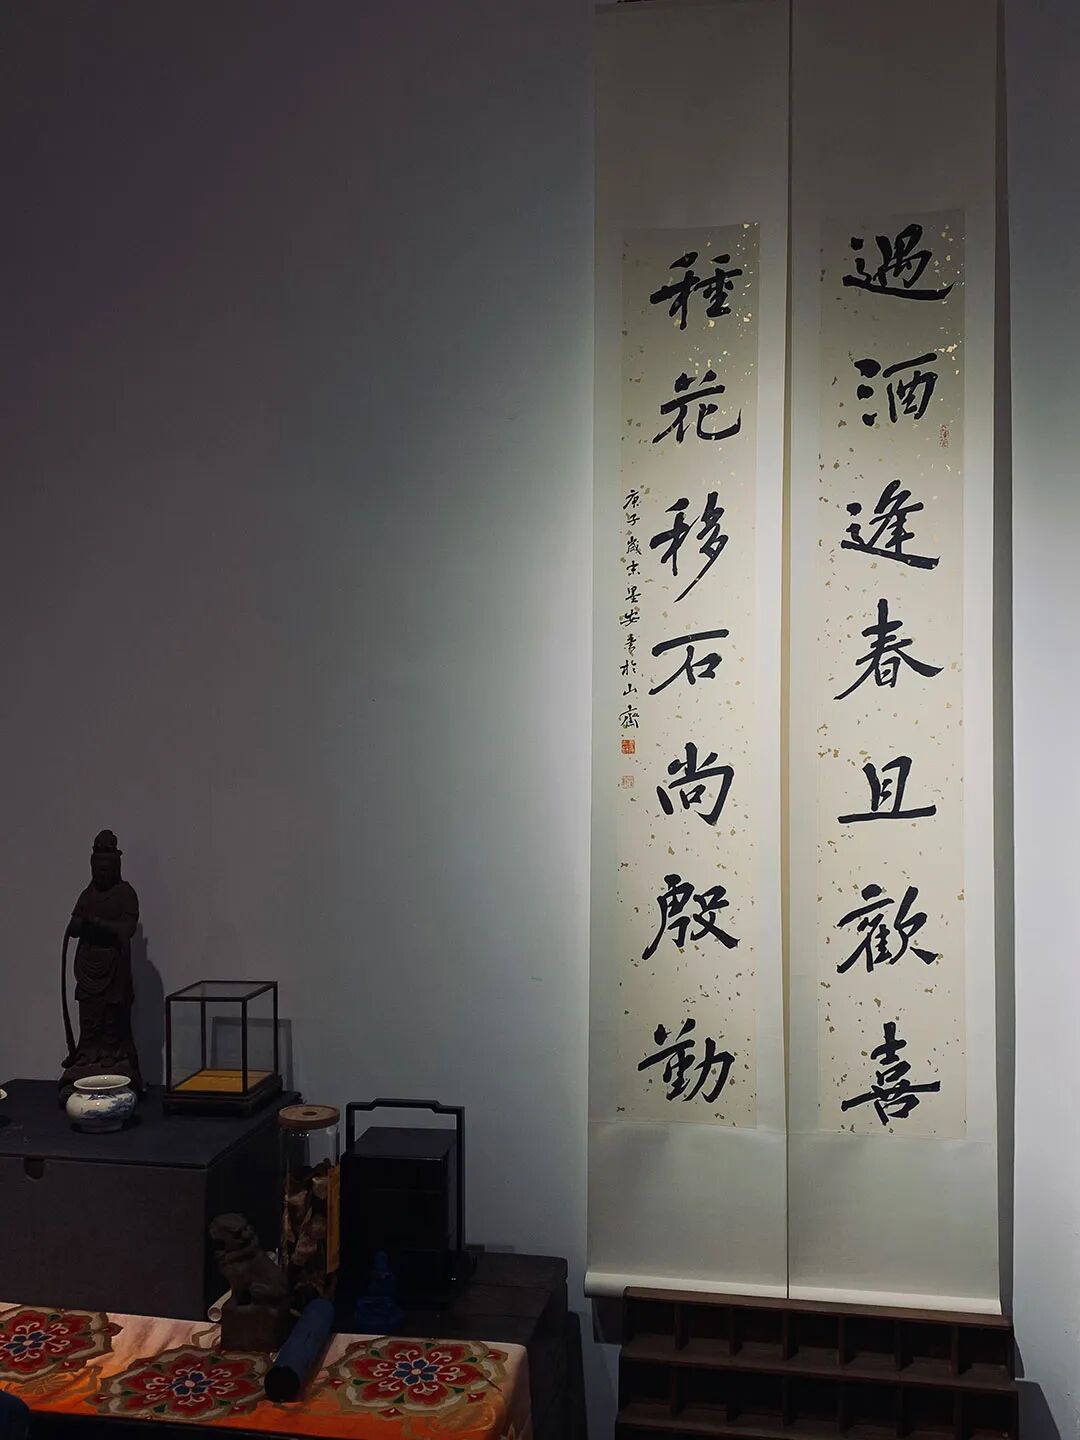 過酒逢春且歡喜
種花移石尚殷勤
庚子歲末墨安書於山齋